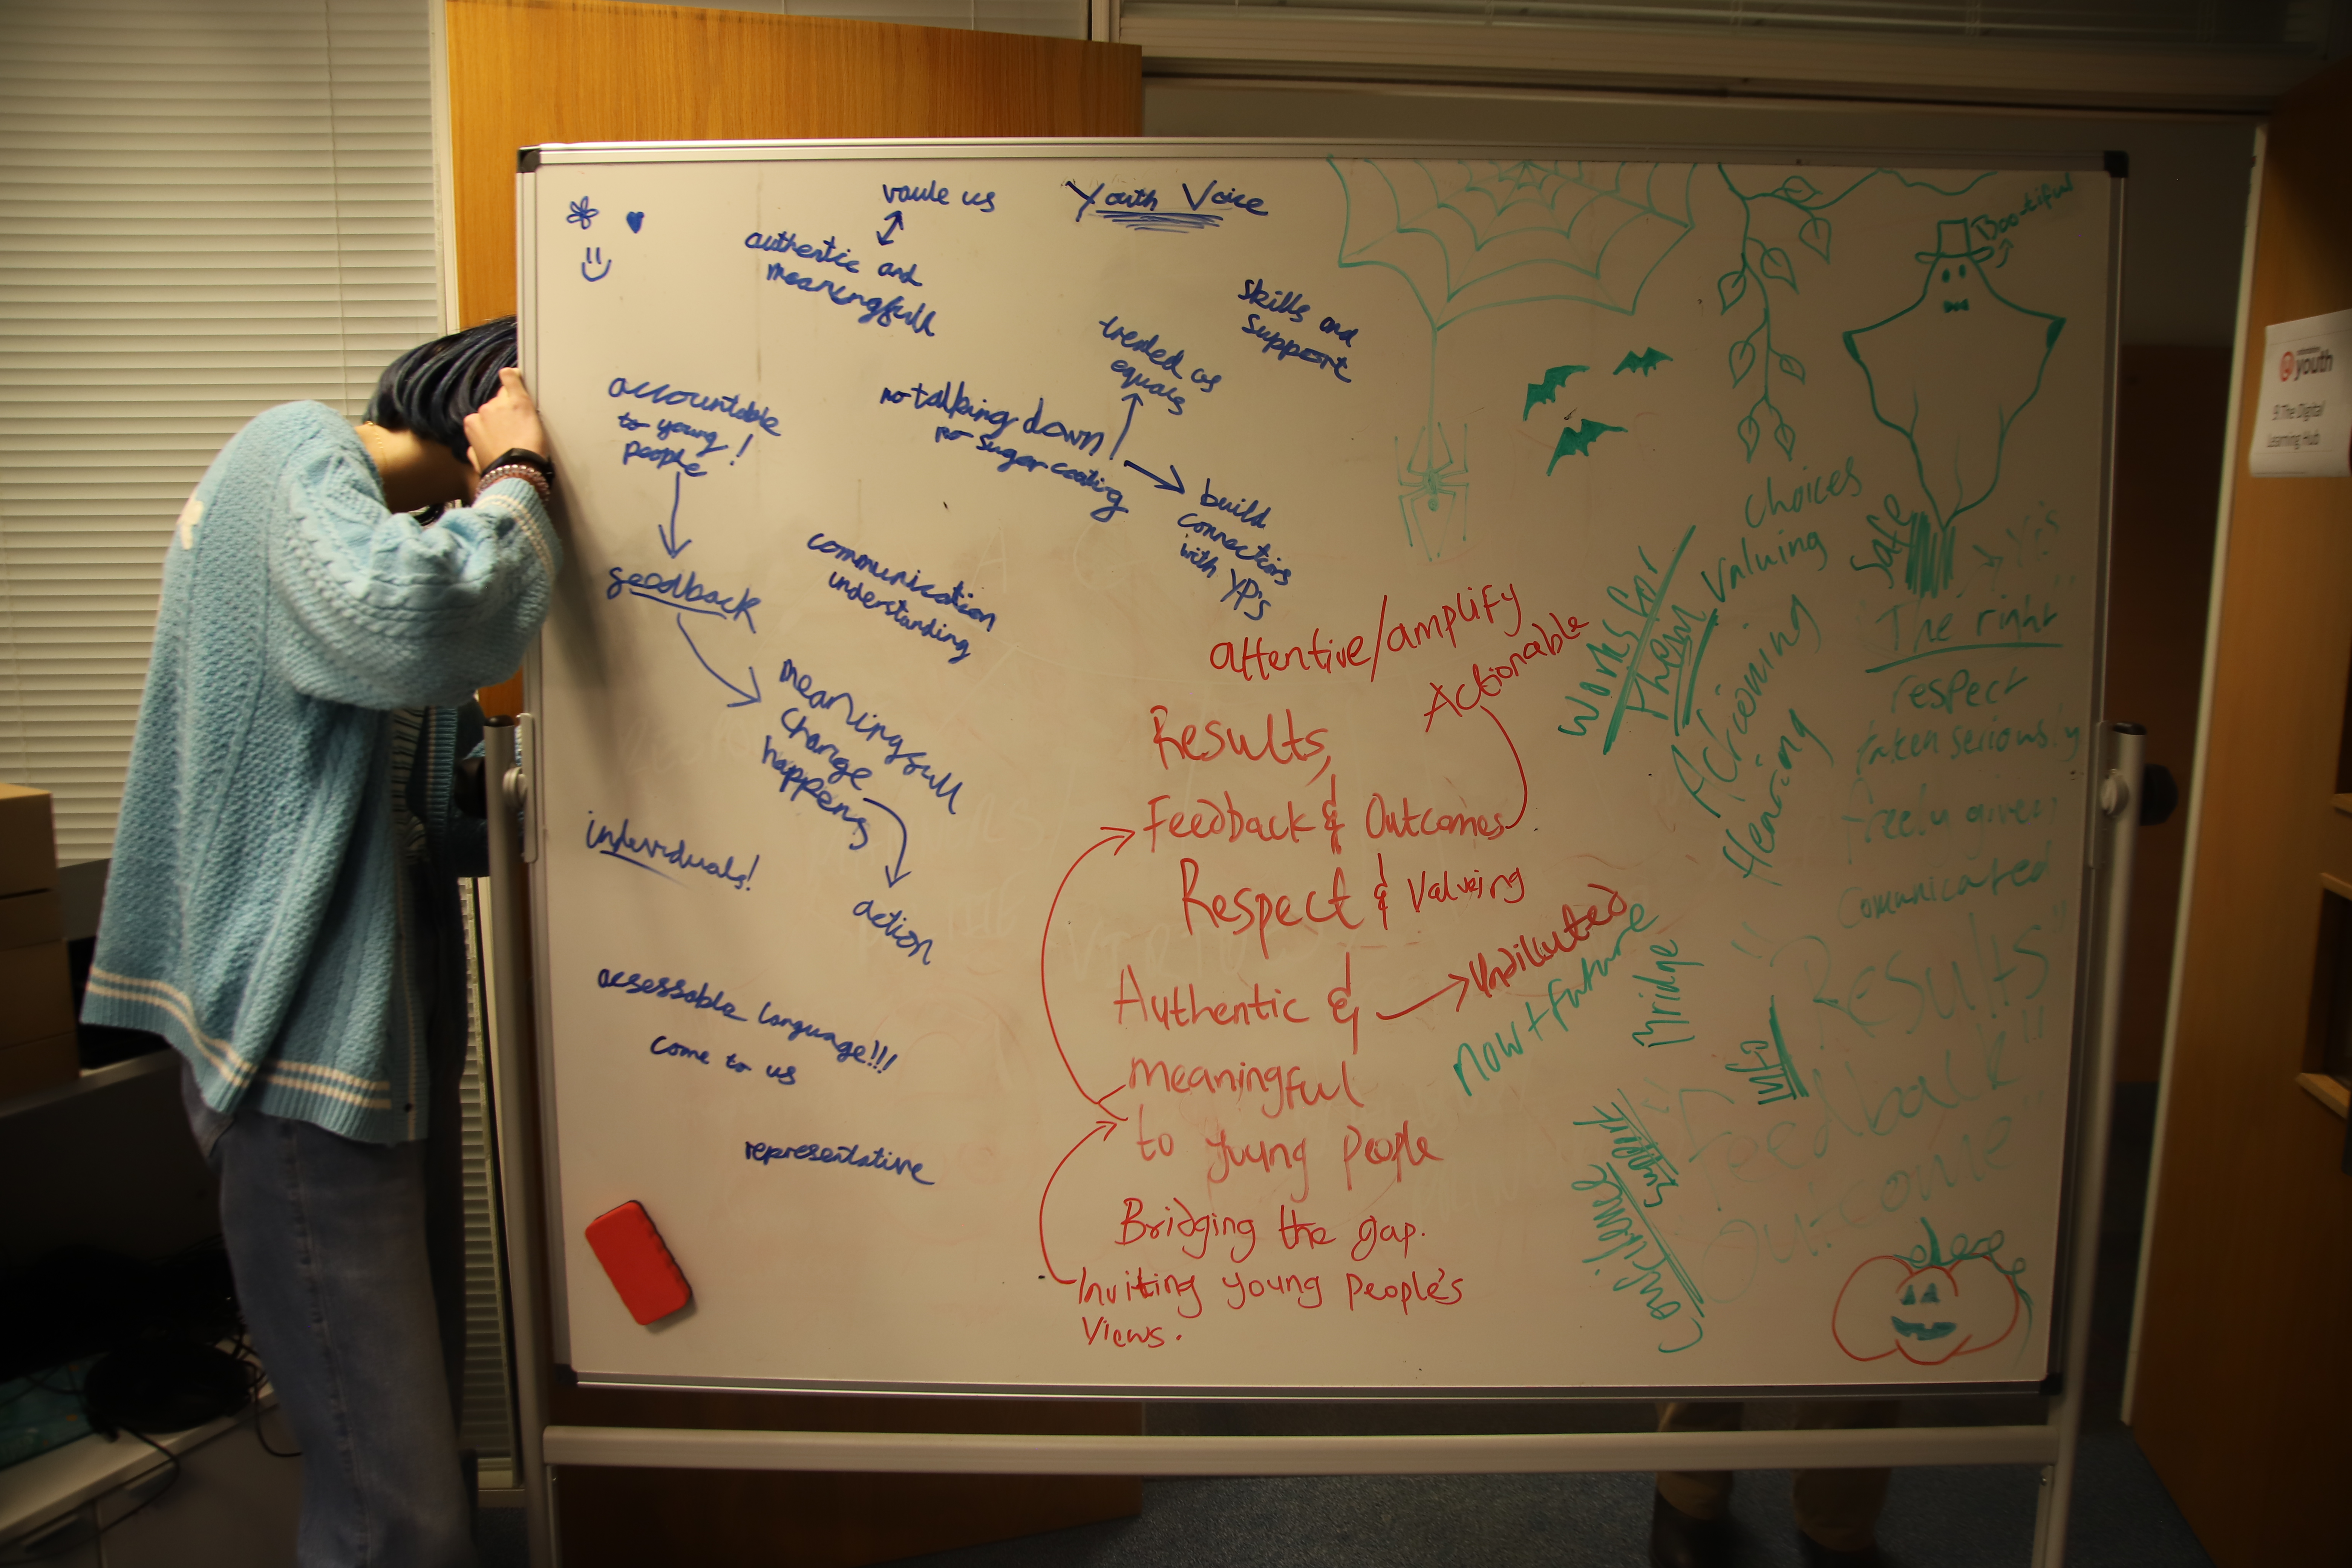 Youth Voice
vaule us
authentic and
meaningfull
skills and
support
treated as
equals
no talking down
no sugar coating
build
connections
with YP's
accountable
to young !
people
feedback
communication
understanding
meaningfull
change
happens
action
individuals!
acsessable language!!!
come to us
representative
attentive/amplify
Actionable
Results,
Feedback & Outcomes
Respect & Valueing
Authentic &
Undiluted
meaningful
to young people
Bridging the gap.
Inviting young people's
views.
Boo-tiful
Choices
Valuing
Works for
them
Actioning
Hearing
Safe
Yes
"The right"
respect
taken seriously
freely given
Comunicated
now + future
bridge
"Results"
Feedback"
Outcome"
Support
youth
9 The Digital
Learning Hub